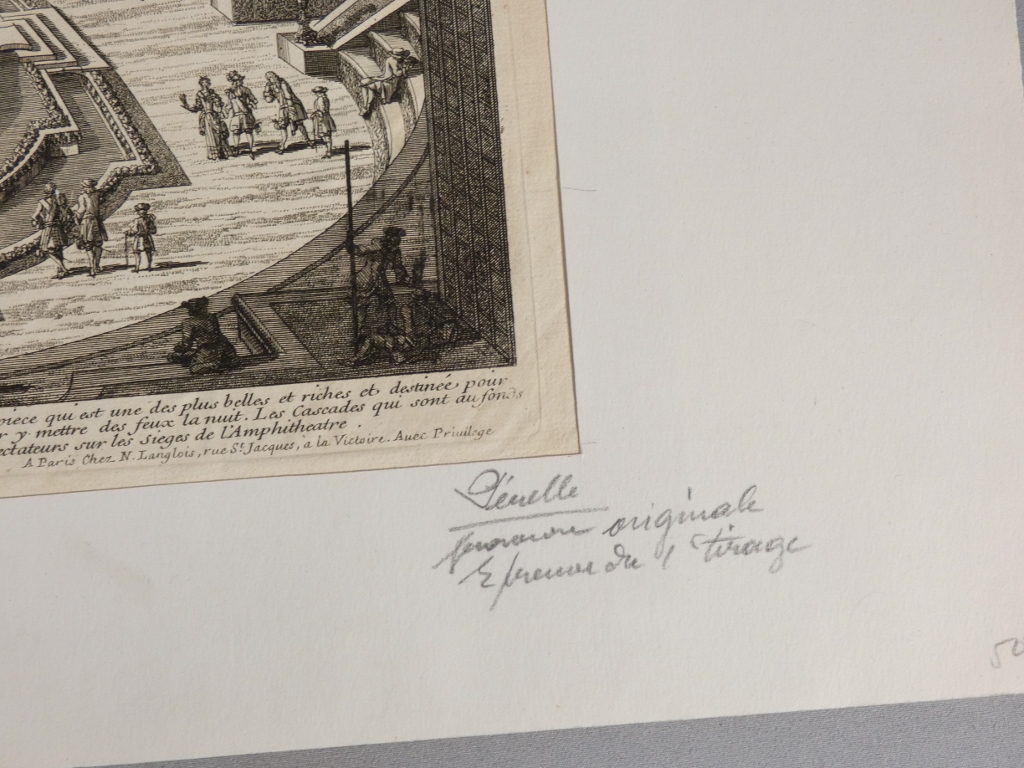 piece qui est une des plus belles et riches et destinée pour
r y mettre des feux la nuit. Les Cascades qui sont au fonds
ectateurs sur les sieges de l'Amphitheatre.
A Paris Chez N. Langlois, rue St. Jacques, a la Victoire. Avec Privilege
Pérelle
originale
du 1er tirage
50